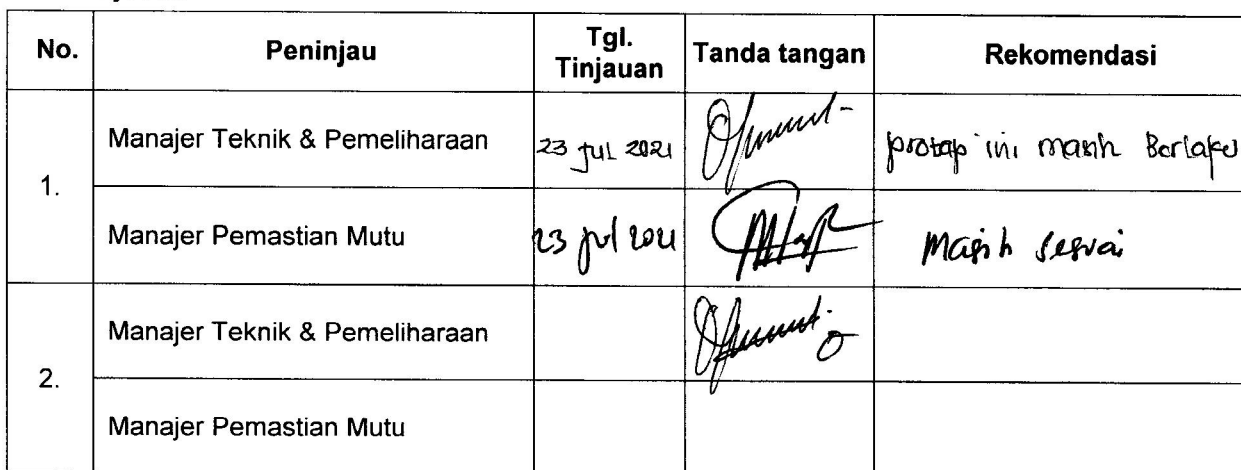 No. Peninjau Tgl. Tinjauan Tanda tangan Rekomendasi
1. Manajer Teknik & Pemeliharaan 23 JUL 2021 protap ini masih Berlaku
Manajer Pemastian Mutu 23 Jul 2021 Masih sesuai
2. Manajer Teknik & Pemeliharaan
Manajer Pemastian Mutu